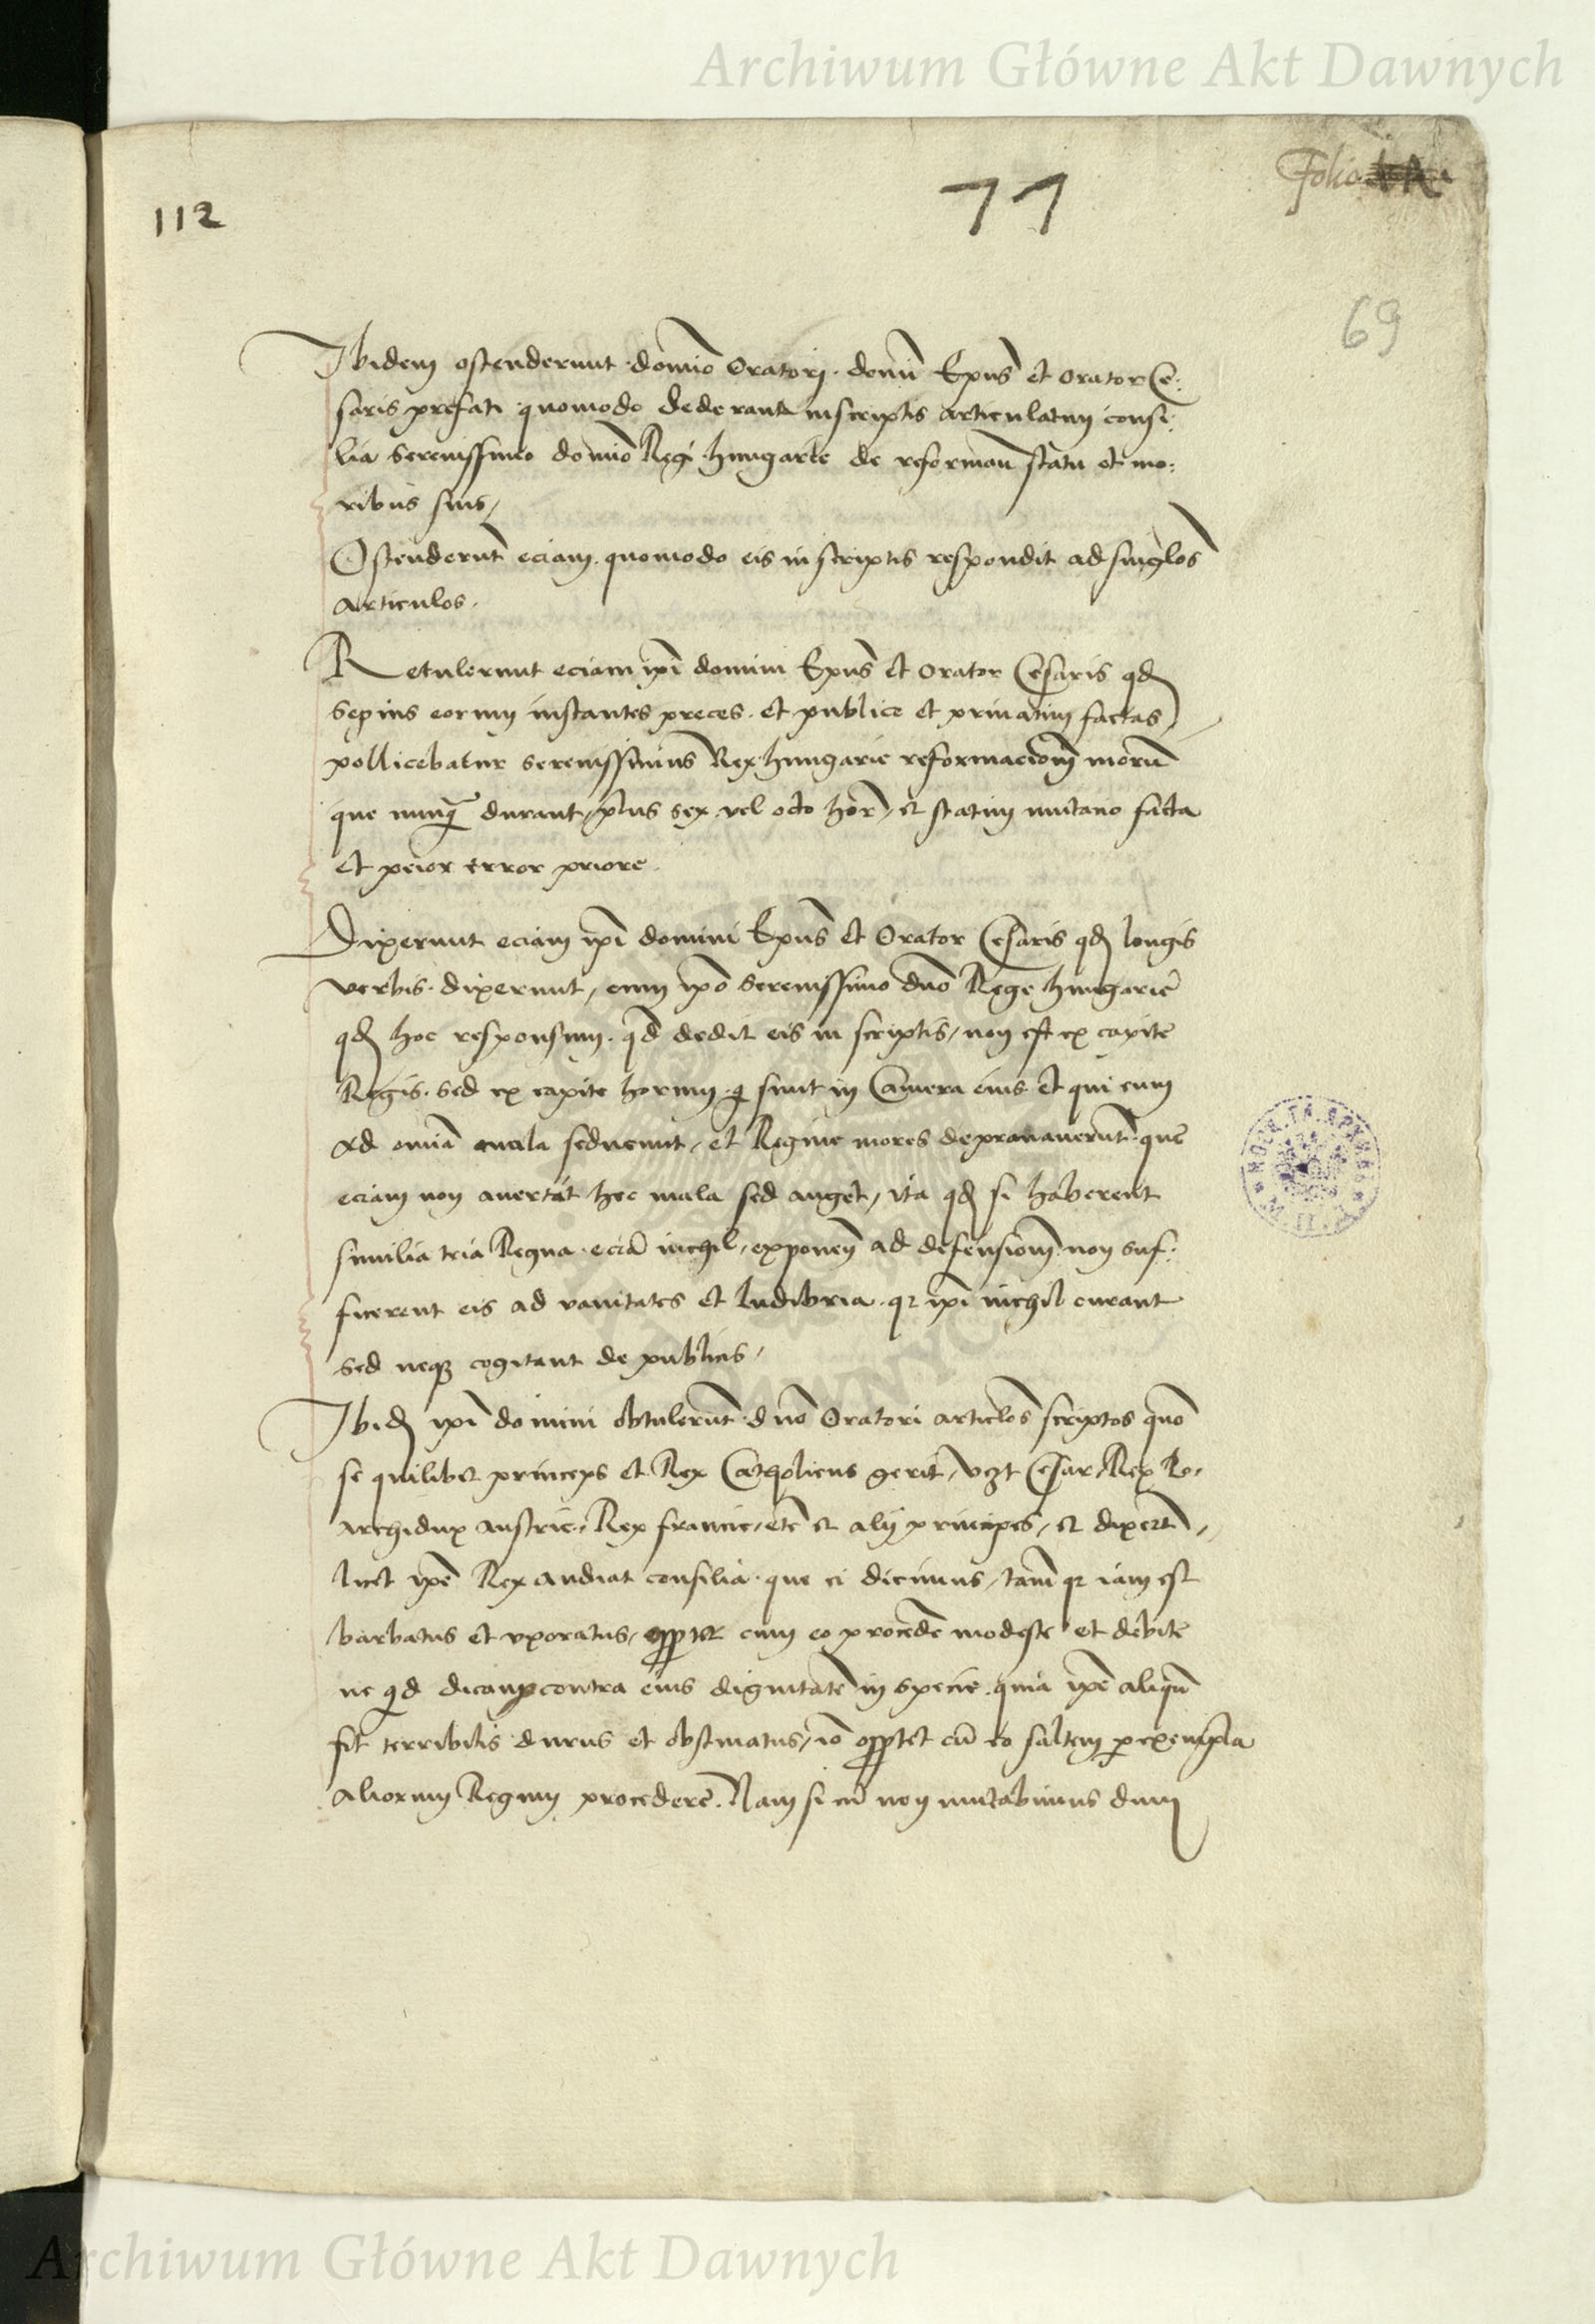 Archiwum Główne Akt Dawnych
Folio
112
71
69
Ibidem ostenderunt domino Oratori. domini Epūs et orator Ce-
saris prefati quomodo dederant inscriptis articulatim consi-
lia serenissimo domino Regi hungarie de reforman statu et mo-
ribus suis/
Ostenderunt eciam. quomodo eis in scriptis respondit ad singlos
articulos.
Retulerunt eciam ipi domini Epūs et orator Cesaris qd
sepius eorum instantes preces. et publice et privatim factas
pollicebatur serenissimus Rex hungarie reformacionem morū
que nunq̄ durant, plus sex vel octo hor, et statim mutacio facta
et peior error priore.
Dixerunt eciam ipi domini Epūs et Orator Cesaris qd longis
verbis. dixerunt, cum ipo serenissimo dno Rege hungarie
qd hoc responsum. qd dedit eis in scriptis, non est ex capite
Regis. sed ex capite horum. q sunt in Camera eius et qui eum
ad omia mala seducunt, et Regine mores depravaverunt. que
eciam non avertit hec mala sed auget, ita qd si haberent
similia tria Regna. eciā nichil, exponen ad defensionem non suf-
ficerent eis ad vanitates et ludibria. qz ipi nichil curant
sed neqz cogitant de publicis,
Ibid ipi domini obtulerunt dno Oratori articlos scriptos quo
se quilibet princeps et Rex Catholicus gerit, vzt Cesar, Rex Ro,
archidux austrie, Rex francie, etc et alij principes, et dixert,
licet ipe Rex audiat consilia. que ei dicimus, tam qz iam est
barbatus et uxoratus, opptet cum eo procede modeste et debite
ne qd dicam contra eius dignitatē in specie. quia ipe aliqn
fit terribilis durus et obstinatus, io opptet cū eo saltem p exempla
aliorum Regum procedere. Nam si eū non mutabimus dum
Archiwum Główne Akt Dawnych